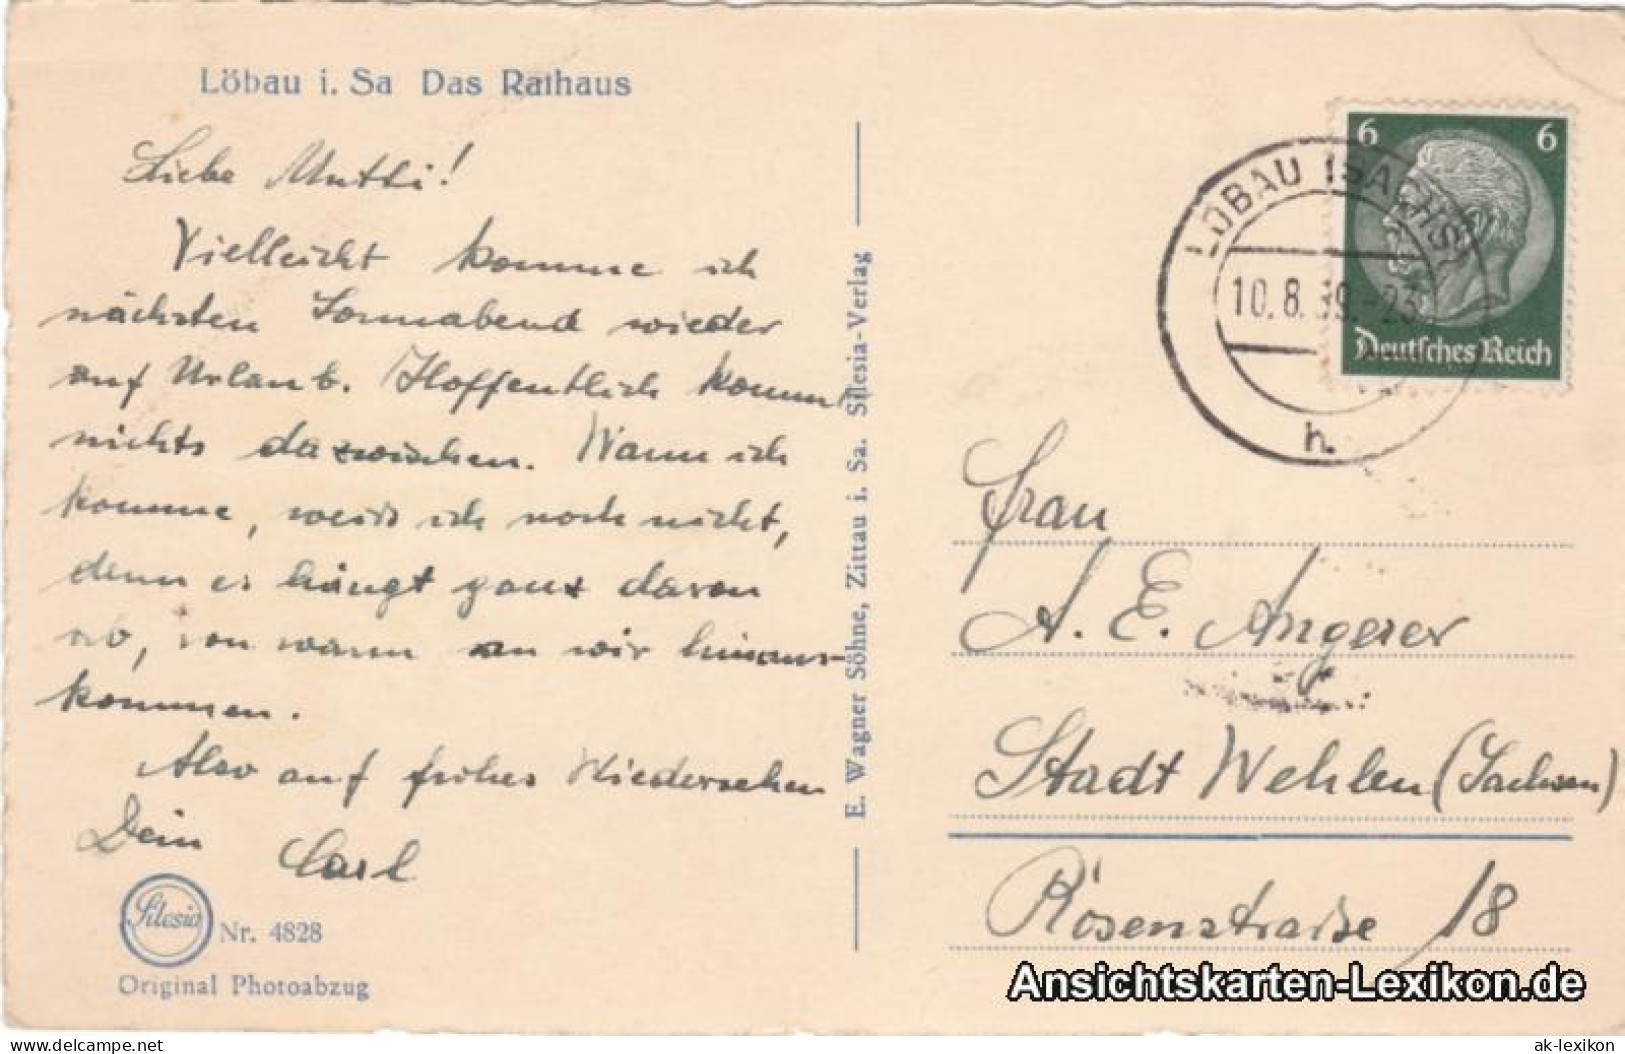 Löbau i. Sa Das Rathaus
Liebe Mutti!
Vielleicht komme ich
nächsten Sonnabend wieder
auf Urlaub. Hoffentlich kommt
nichts dazwischen. Wann ich
komme, weiß ich noch nicht,
denn es hängt ganz davon
ab, von wann an wir hinaus-
kommen.
Also auf frohes Wiedersehen
Dein Carl
Silesia
Nr. 4828
Original Photoabzug
E. Wagner Söhne, Zittau i. Sa. Silesia-Verlag
6 6
Deutsches Reich
LÖBAU (SACHS)
10.8.39.-23
h.
Frau
A. E. Angerer
Stadt Wehlen (Sachsen)
Rosenstraße 18
Ansichtskarten-Lexikon.de
delcampe.net
ak-lexikon